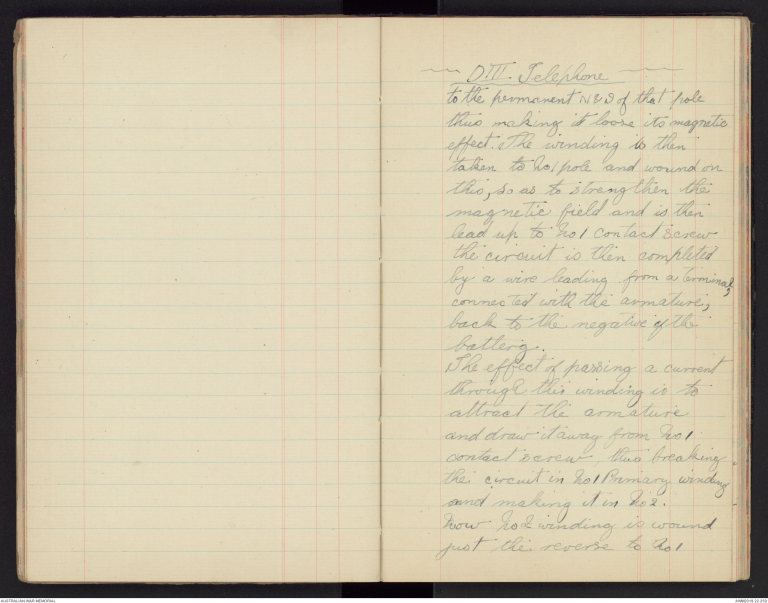 DIII. Telephone
to the permanent N & S of that pole
thus making it loose its magnetic
effect. The winding is then
taken to No 1 pole and wound on
this, so as to strengthen the
magnetic field and is then
lead up to No 1 contact screw
the circuit is then completed
by a wire leading from a terminal,
connected with the armature,
back to the negative of the
battery.
The effect of passing a current
through this winding is to
attract the armature
and draw it away from No 1
contact screw, thus breaking
the circuit in No 1 Primary winding
and making it in No 2.
Now No 2 winding is wound
just the reverse to No 1
AUSTRALIAN WAR MEMORIAL